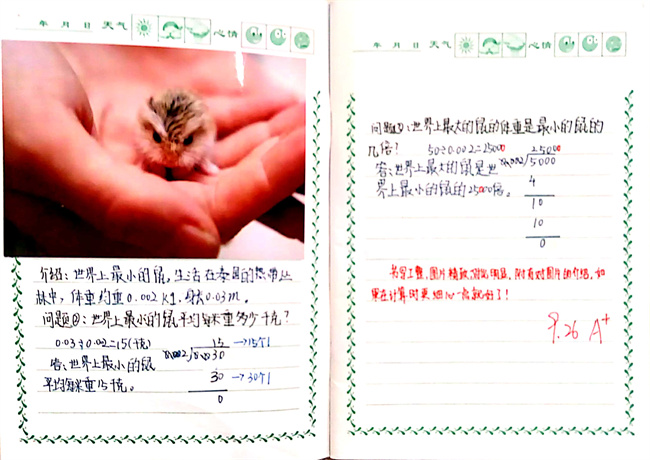 年 月 日 天气 心情
介绍:世界上最小的鼠,生活在泰国的热带丛
林中,体重约重0.002kg.身长0.03m。
问题②:世界上最小的鼠平均每米重多少千克?
0.03÷0.02=15(千克)
15 →15个1
答:世界上最小的鼠
平均每米重15千克。
30 →30个1
0
年 月 日 天气 心情
问题①:世界上最大的鼠的体重是最小的鼠的
几倍?
50÷0.002=25000
25000
5000
答:世界上最大的鼠是世
界上最小的鼠的25000倍。
4
10
10
0
书写工整,图片精致,对比明显,附有对图片的介绍,如
果在计算时更细心一点就好了!
9.26 A+